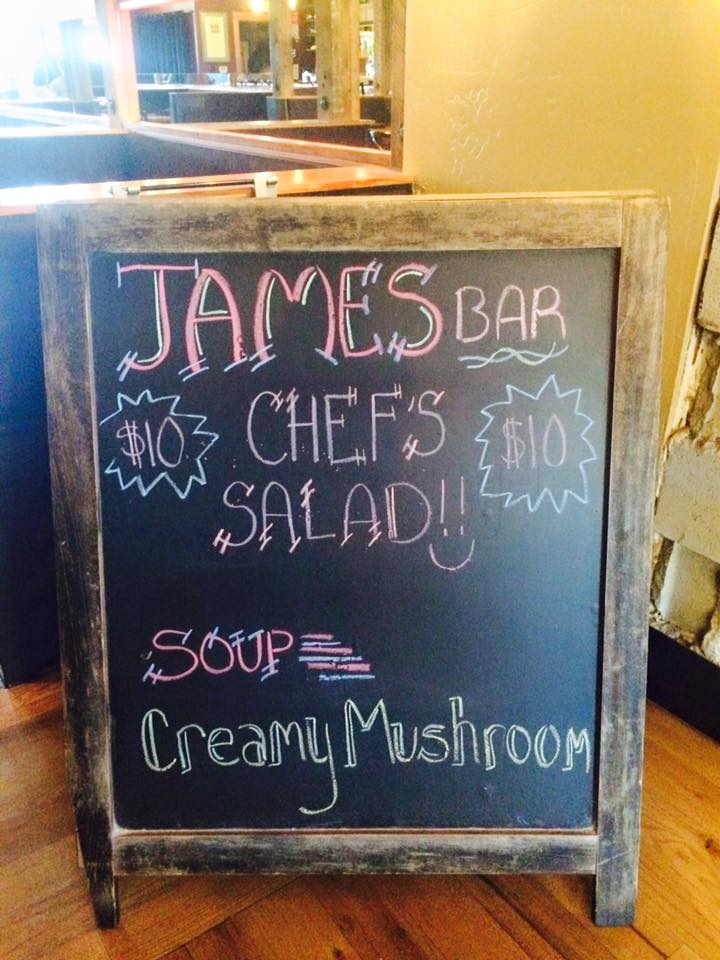 JAMES BAR
$10 CHEF'S $10
SALAD!!
SOUP
Creamy Mushroom